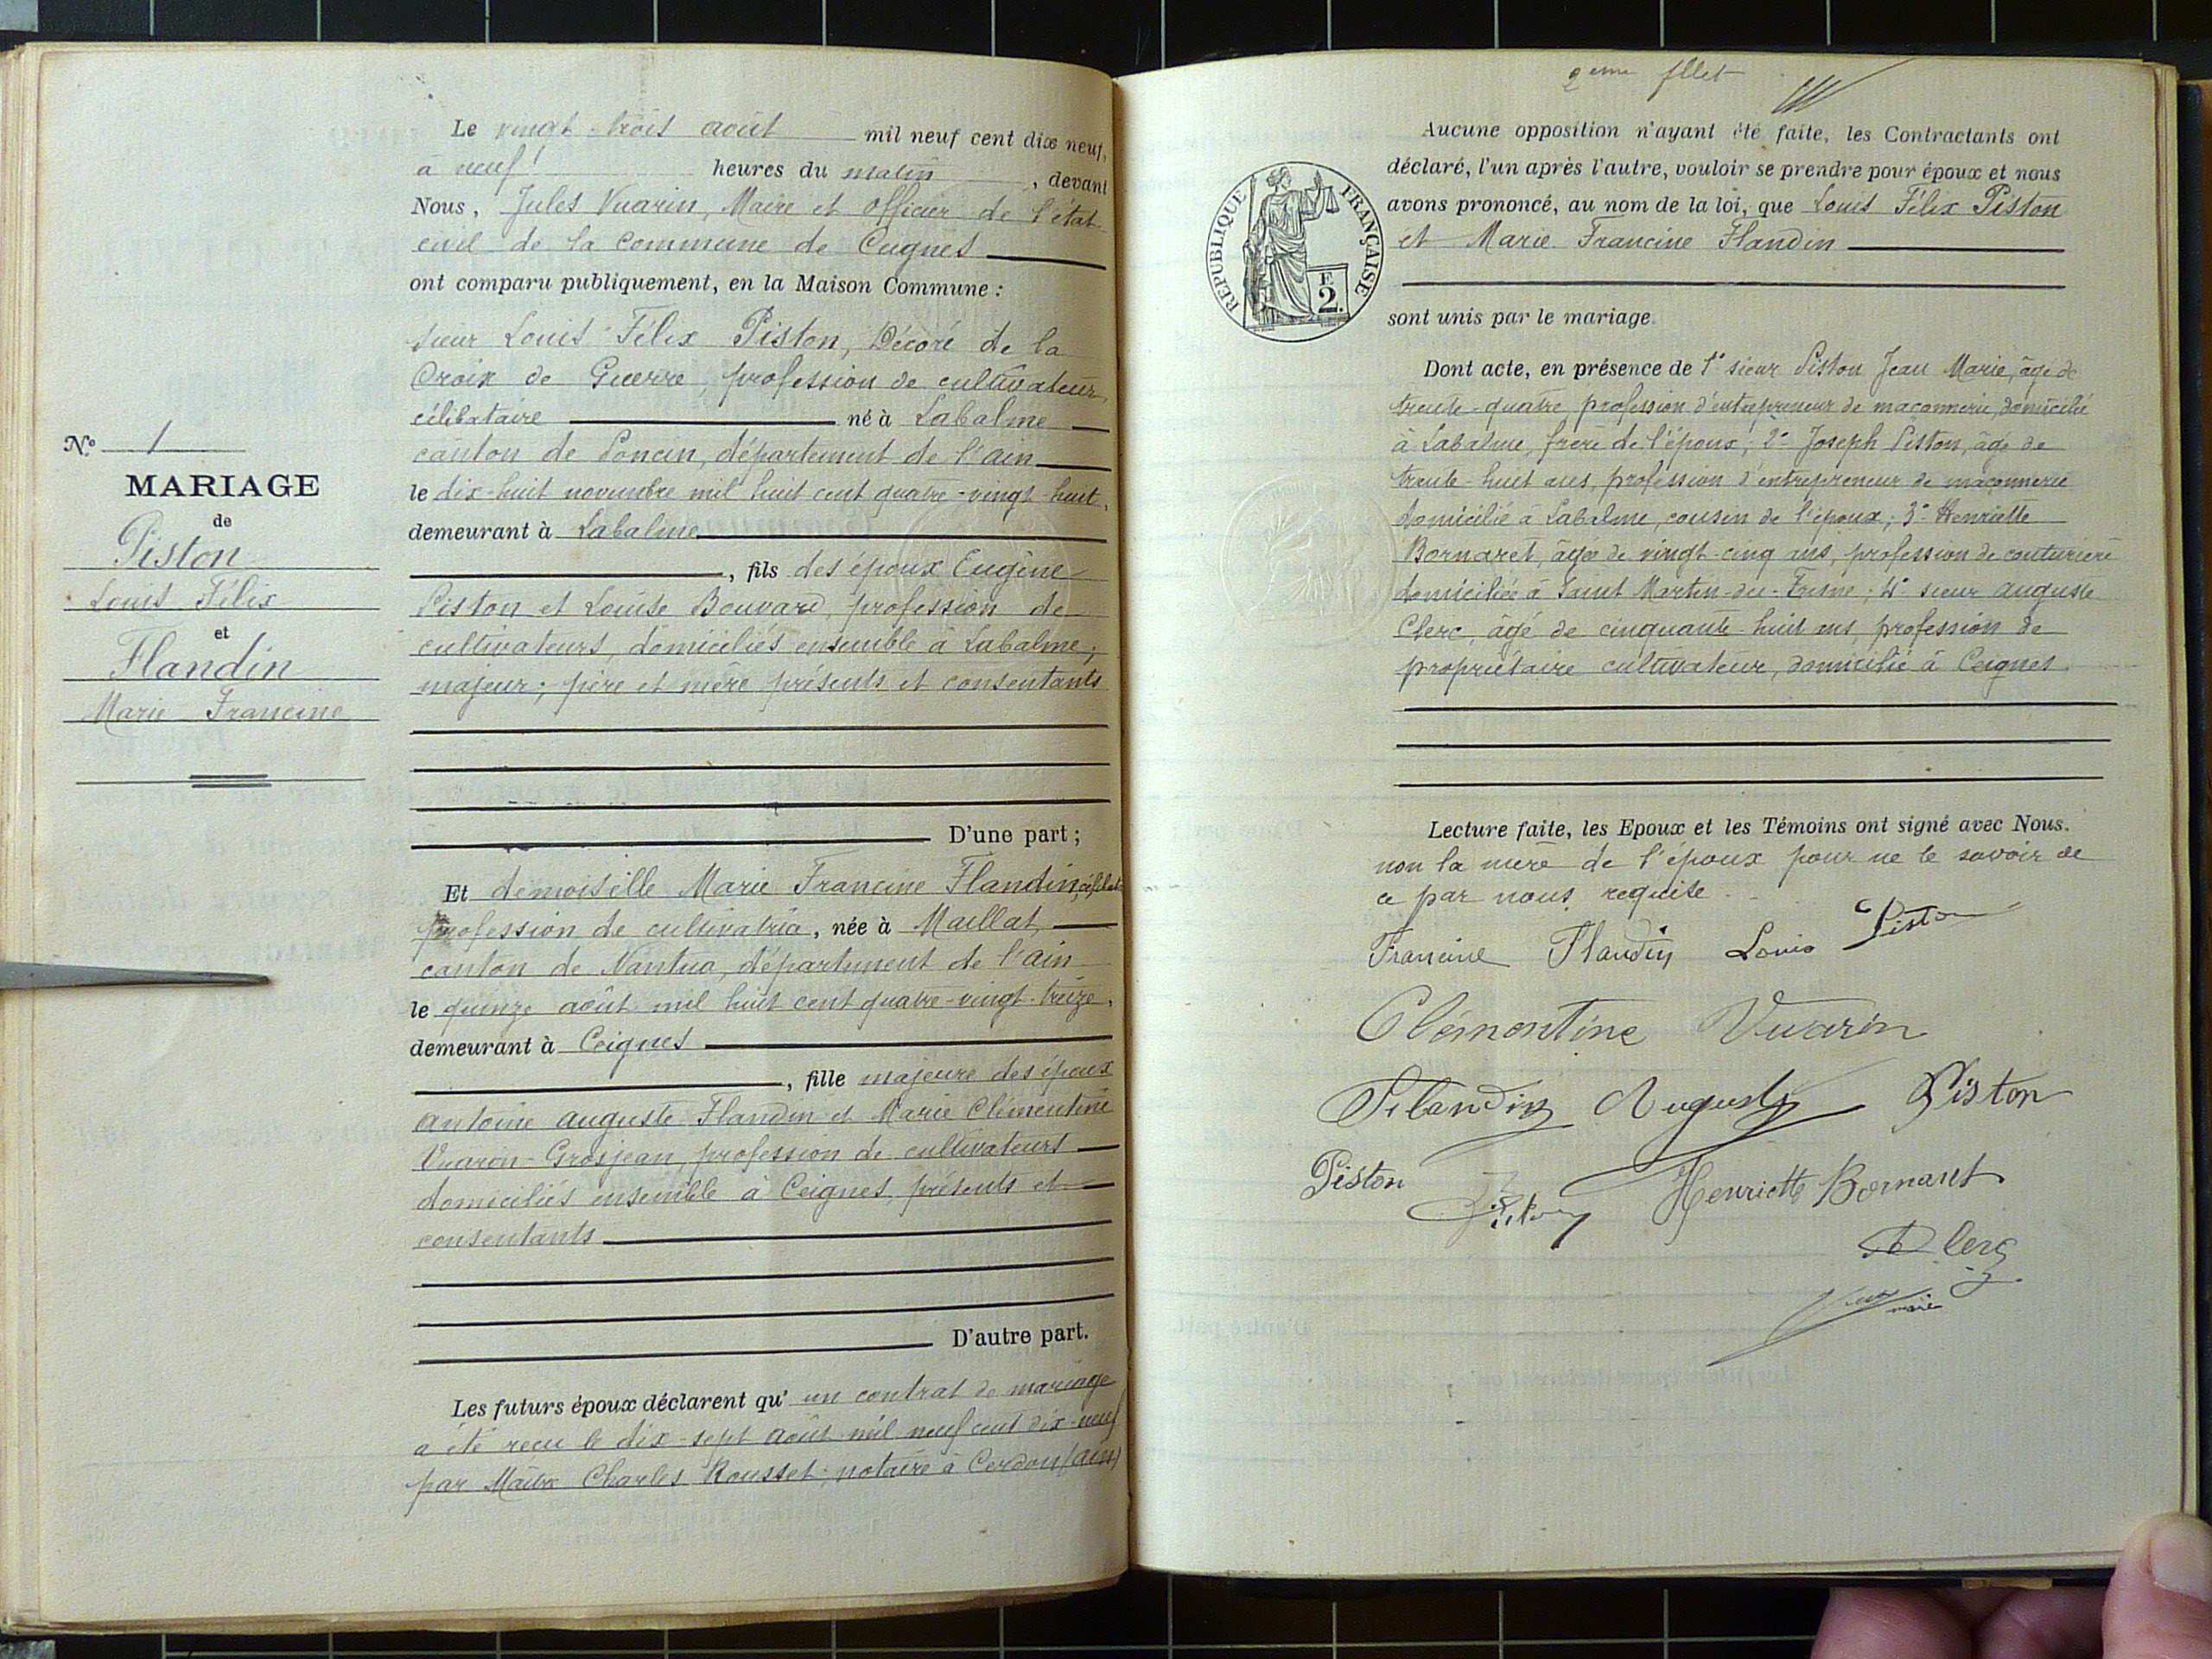 N° 1
MARIAGE
de
Piston
Louis Félix
et
Flandin
Marie Francine
Le vingt-trois août mil neuf cent dix neuf,
à neuf heures du matin, devant
Nous, Jules Vuarin, Maire et officier de l'état
civil de la commune de Ceignes
ont comparu publiquement, en la Maison Commune :
sieur Louis Félix Piston, Décoré de la
Croix de Guerre, profession de cultivateur,
célibataire né à Labalme
canton de Poncin, département de l'ain
le dix-huit novembre mil huit cent quatre-vingt-huit,
demeurant à Labalme
, fils des époux Eugène
Piston et Louise Bouvard, profession de
cultivateurs, domiciliés ensemble à Labalme,
majeur ; père et mère présents et consentants
D'une part ;
Et demoiselle Marie Francine Flandin,
profession de cultivatrice, née à Maillat,
canton de Nantua, département de l'ain
le quinze août mil huit cent quatre-vingt-treize,
demeurant à Ceignes
, fille majeure des époux
antoine auguste Flandin et Marie Clémentine
Vuarin-Grosjean, profession de cultivateurs
domiciliés ensemble à Ceignes, présents et
consentants
D'autre part.
Les futurs époux déclarent qu'un contrat de mariage
a été recu le dix-sept août mil neuf cent dix-neuf
par Maître Charles Rousset, notaire à Cerdon (ain)
2eme fllet
RÉPUBLIQUE FRANÇAISE
F
2.
Aucune opposition n'ayant été faite, les Contractants ont
déclaré, l'un après l'autre, vouloir se prendre pour époux et nous
avons prononcé, au nom de la loi, que Louis Félix Piston
et Marie Francine Flandin
sont unis par le mariage.
Dont acte, en présence de 1° sieur Piston Jean Marie, âgé de
trente-quatre profession d'entrepreneur de maçonnerie, domicilié
à Labalme, frère de l'époux ; 2° Joseph Piston, âgé de
trente-huit ans, profession d'entrepreneur de maçonnerie
domicilié à Labalme, cousin de l'époux ; 3° Henriette
Bornaret, âgée de vingt-cinq ans, profession de couturière
domiciliée à Saint Martin-du-Fresne ; 4° sieur auguste
Clerc, âgé de cinquante-huit ans, profession de
propriétaire cultivateur, domicilié à Ceignes
Lecture faite, les Epoux et les Témoins ont signé avec Nous.
non la mère de l'époux pour ne le savoir de
ce par nous requise.
Francine Flandin Louis Piston
Clémentine Vuarin
Flandin Auguste Piston
Piston Piston Henriette Bornaret
A Clerc
maire